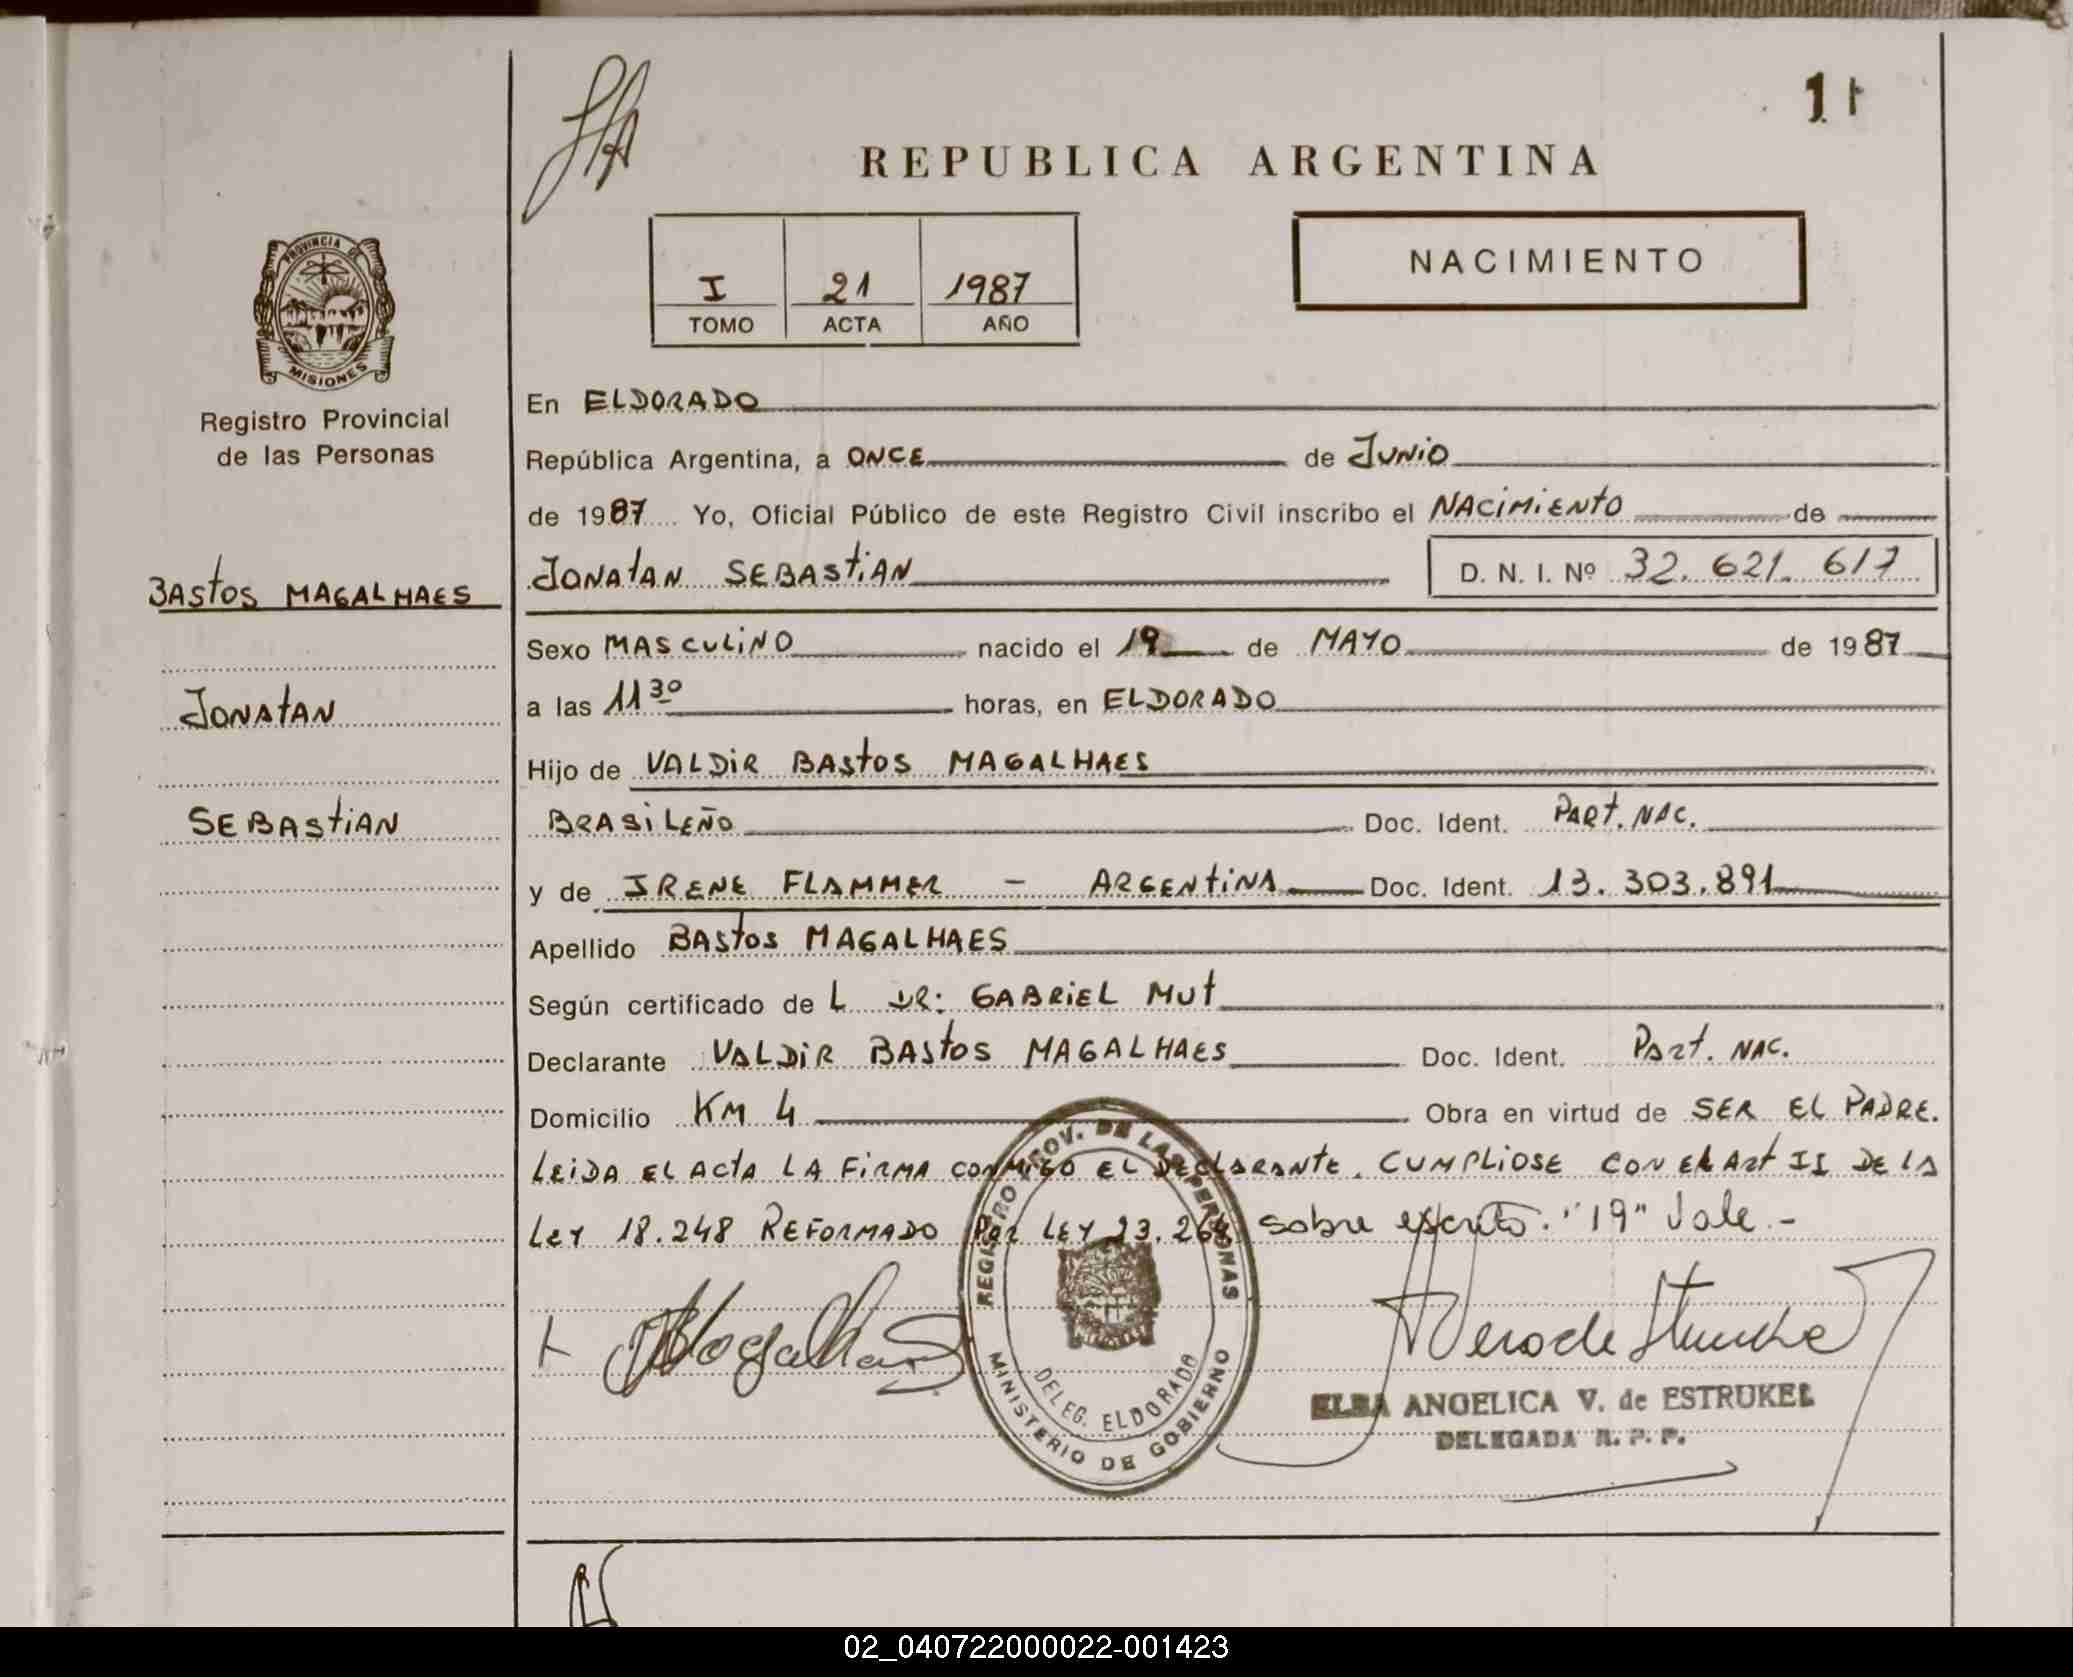 11
REPUBLICA ARGENTINA
I 21 1987
TOMO ACTA AÑO
NACIMIENTO
PROVINCIA DE
MISIONES
Registro Provincial
de las Personas
BASTOS MAGALHAES
JONATAN
SEBASTIAN
En ELDORADO
República Argentina, a ONCE de JUNIO
de 1987 Yo, Oficial Público de este Registro Civil inscribo el NACIMIENTO de
JONATAN SEBASTIAN D. N. I. Nº 32.621.617
Sexo MASCULINO nacido el 19 de MAYO de 1987
a las 11 30 horas, en ELDORADO
Hijo de VALDIR BASTOS MAGALHAES
BRASILEÑO Doc. Ident. PART. NAC.
y de IRENE FLAMMER - ARGENTINA Doc. Ident. 13.303.891
Apellido BASTOS MAGALHAES
Según certificado de L DR: GABRIEL MUT
Declarante VALDIR BASTOS MAGALHAES Doc. Ident. PART. NAC.
Domicilio KM 4 Obra en virtud de SER EL PADRE.
LEIDA EL ACTA LA FIRMA CONMIGO EL DECLARANTE. CUMPLIOSE CON EL ART II DE LA
LEY 18.248 REFORMADO POR LEY 23.264 sobre escrito. "19" Vale.-
REGISTRO PROV. DE LAS PERSONAS
DELEG. ELDORADO
MINISTERIO DE GOBIERNO
ELBA ANGELICA V. de ESTRUKEL
DELEGADA R. P. P.
02_040722000022-001423